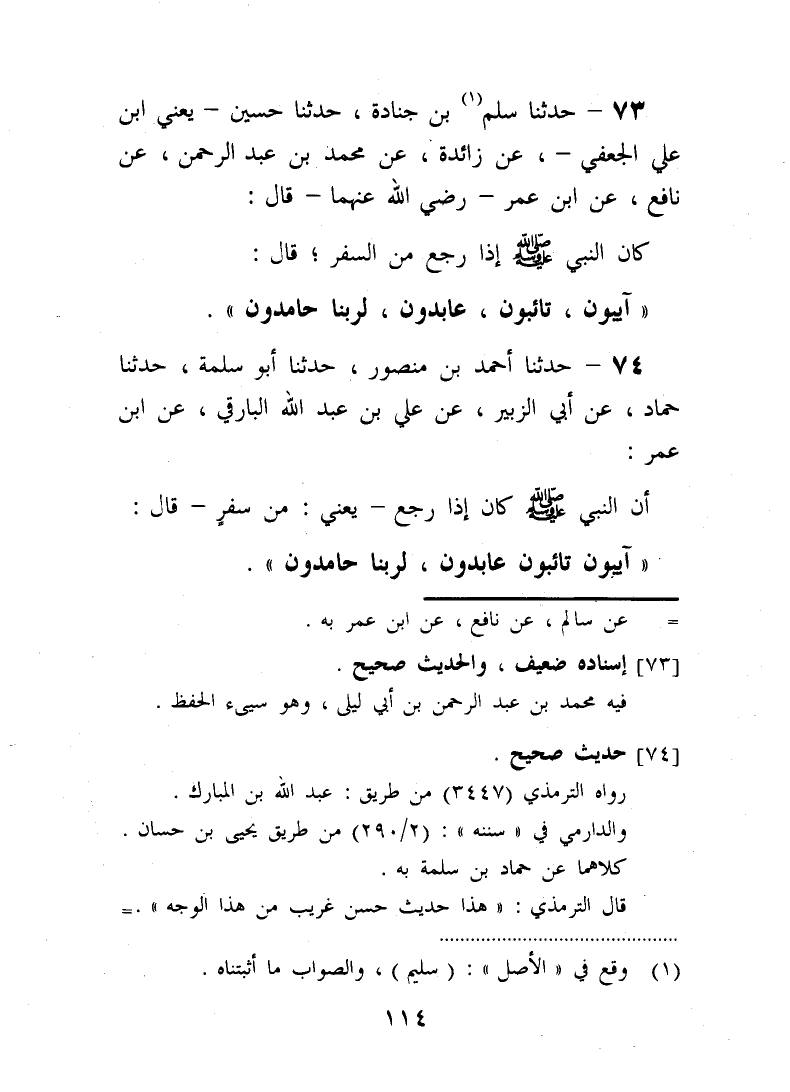 ٧٣ – حدثنا سلم(١) بن جنادة ، حدثنا حسين – يعني ابن
علي الجعفي – ، عن زائدة ، عن محمد بن عبد الرحمن ، عن
نافع ، عن ابن عمر – رضي الله عنهما – قال :
كان النبي ﷺ إذا رجع من السفر ؛ قال :
« آيبون ، تائبون ، عابدون ، لربنا حامدون » .
٧٤ – حدثنا أحمد بن منصور ، حدثنا أبو سلمة ، حدثنا
حماد ، عن أبي الزبير ، عن علي بن عبد الله البارقي ، عن ابن
عمر :
أن النبي ﷺ كان إذا رجع – يعني : من سفرٍ – قال :
« آيبون تائبون عابدون ، لربنا حامدون » .
= عن سالم ، عن نافع ، عن ابن عمر به .
[٧٣] إسناده ضعيف ، والحديث صحيح .
فيه محمد بن عبد الرحمن بن أبي ليلى ، وهو سيىء الحفظ .
[٧٤] حديث صحيح .
رواه الترمذي (٣٤٤٧) من طريق : عبد الله بن المبارك .
والدارمي في « سننه » : (٢٩٠/٢) من طريق يحيى بن حسان .
كلاهما عن حماد بن سلمة به .
قال الترمذي : « هذا حديث حسن غريب من هذا الوجه » .=
(١) وقع في « الأصل » : ( سليم ) ، والصواب ما أثبتناه .
١١٤